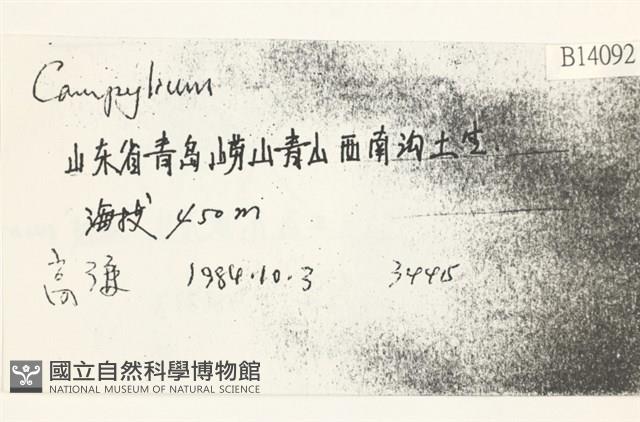 B14092
Campylium
山东省青岛崂山青山西南沟土生.
海拔 450m
1984.10.3 34415
國立自然科學博物館
NATIONAL MUSEUM OF NATURAL SCIENCE